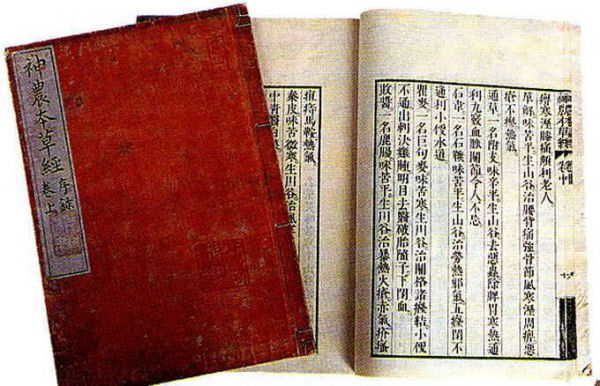 神農本草經
序錄
卷上
神農本草經 卷中
痹寒濕膝痛頗利老人
萆薢味苦平生山谷治腰背痛強骨節風寒濕周痹惡
瘡不瘳熱氣
通草一名附支味辛平生山谷去惡蟲除脾胃寒熱通
利九竅血脈關節令人不忘
石韋一名石䩾味苦平生山谷治勞熱邪氣五癃閉不
通利小便水道
瞿麥一名巨句麥味苦寒生川谷治關格諸癃結小便
不通出刺決癰腫明目去翳破胎墮子下閉血
敗醬一名鹿腸味苦平生川谷治暴熱火瘡赤氣疥瘙
疽痔馬鞍熱氣
秦皮味苦微寒生川谷治風寒
中青翳白